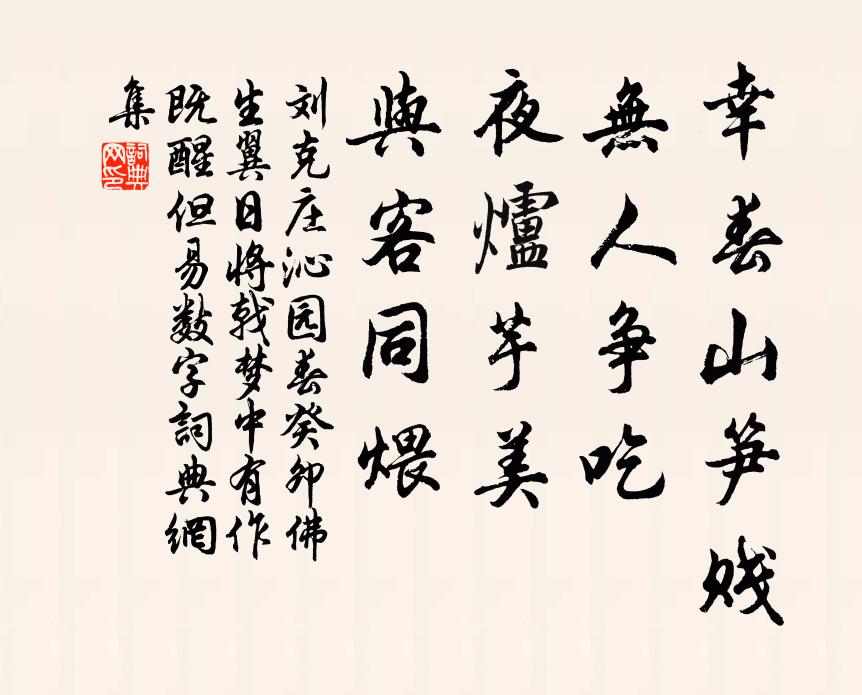 幸春山笋贱
無人争吃
夜爐芋美
與客同煨
刘克庄沁园春癸卯佛
生翼日将戟梦中有作
既醒但易数字詞典網
集
詞典
网印